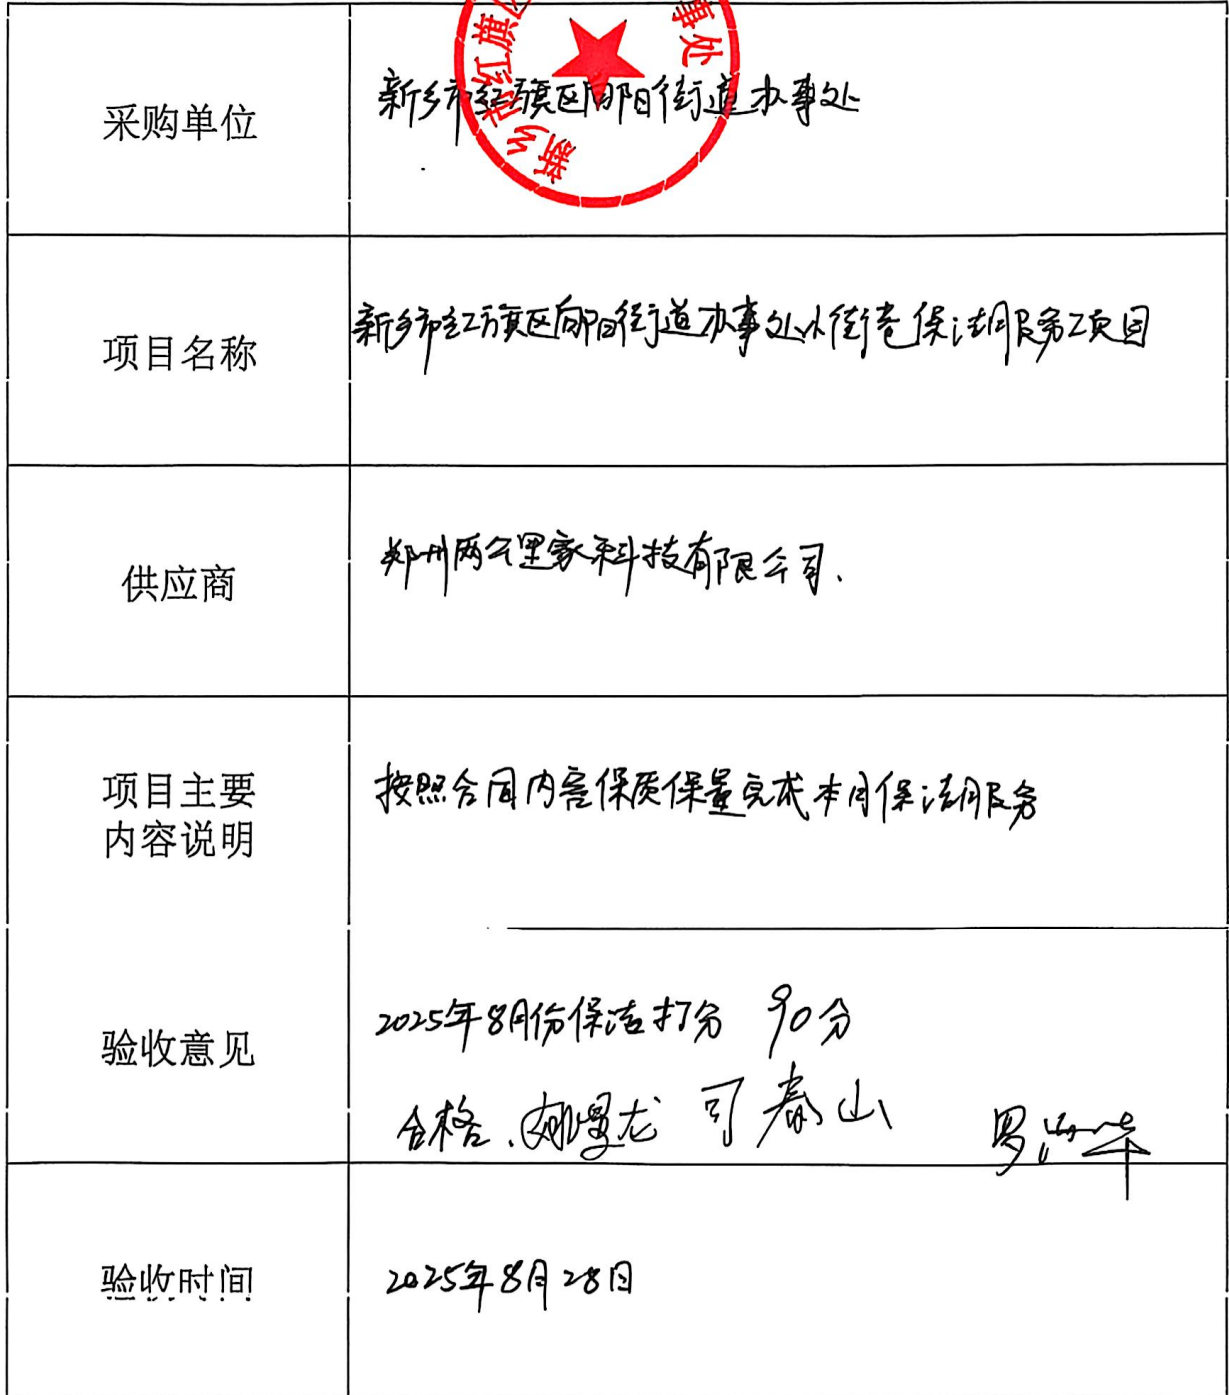 新乡市红旗区
事处
采购单位
新乡市红旗区向阳街道办事处
项目名称
新乡市红旗区向阳街道办事处小街巷保洁服务项目
供应商
郑州两公里家科技有限公司.
项目主要
内容说明
按照合同内容保质保量完成本月保洁服务
验收意见
2025年8月份保洁打分 90分
合格. 司春山
验收时间
2025年8月28日